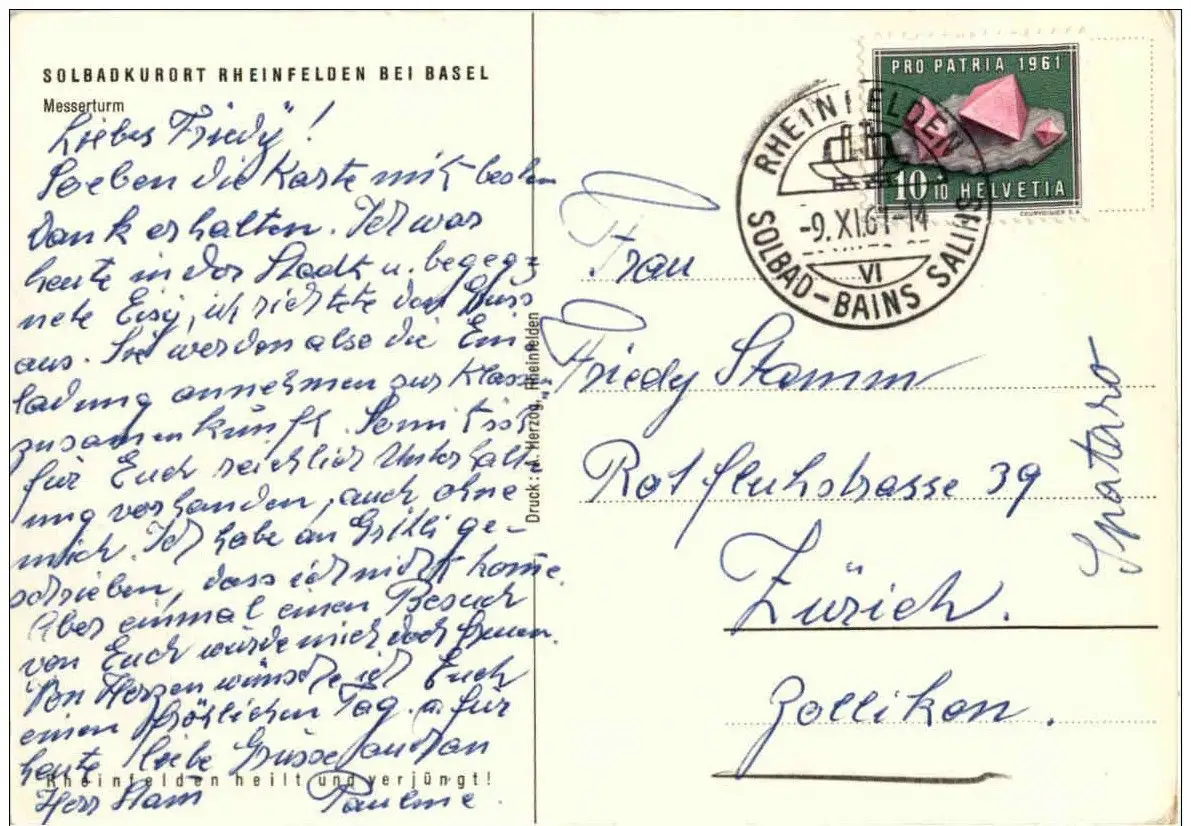 SOLBADKURORT RHEINFELDEN BEI BASEL
Messerturm
Liebes Friedy!
Soeben die Karte mit besten
Dank erhalten. Ich war
heute in der Stadt u. begeg-
nete Eisy, ich richtete den Gruss
aus. Sie werden also die Ein
ladung annehmen zur Klassen
zusammenkunft. Somit ist
für Euch reichlich Unterhalt
ung vorhanden, auch ohne
mich. Ich habe an Gritli ge-
schrieben, dass ich nicht kome.
Aber einmal einen Besuch
von Euch würde mich doch freuen.
Von Herzen wünsche ich Euch
einen fröhlichen Tag. u. für
heute liebe Grüsse auch an
Rheinfelden heilt und verjüngt!
Herr Stam Pauline.
Druck: A. Herzog, Rheinfelden
PRO PATRIA 1961
10+10 HELVETIA
COURVOISIER S.A.
RHEINFELDEN
-9.XI.61-14
VI
SOLBAD-BAINS SALINS
Frau
Friedy Stamm
Rotfluhstrasse 39
Zürich.
Zollikon.
Spataro